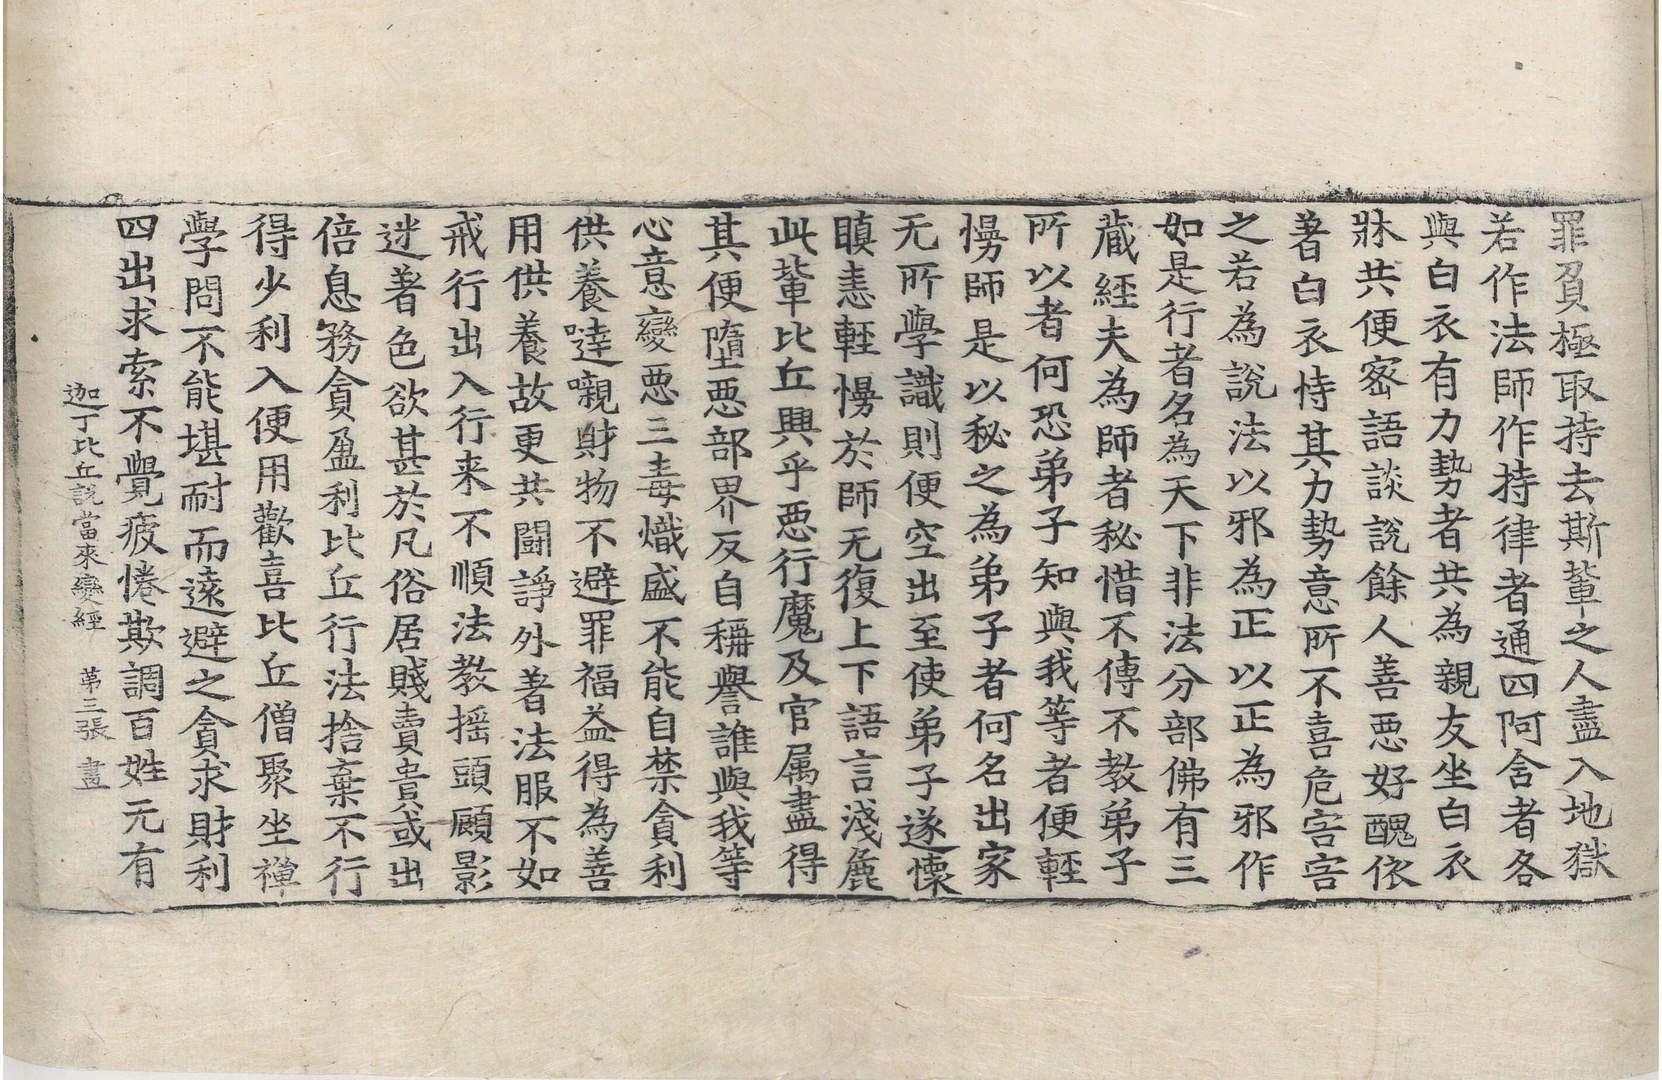 罪負極取持去斯輩之人盡入地獄
若作法師作持律者通四阿含者各
與白衣有力勢者共為親友坐白衣
牀共便密語談說餘人善惡好醜依
著白衣恃其力勢意所不喜危害害
之若為說法以邪為正以正為邪作
如是行者名為天下非法分部佛有三
藏經夫為師者秘惜不傳不教弟子
所以者何恐弟子知與我等者便輕
慢師是以秘之為弟子者何名出家
无所學識則便空出至使弟子遂懷
瞋恚輕慢於師无復上下語言淺麁
此輩比丘興乎惡行魔及官属盡得
其便墮惡部界反自稱譽誰與我等
心意變惡三毒熾盛不能自禁貪利
供養噠嚫財物不避罪福益得為善
用供養故更共鬪諍外著法服不如
戒行出入行来不順法教揺頭顧影
迷著色欲甚於凡俗居賤賣貴或出
倍息務貪盈利比丘行法捨棄不行
得少利入便用歡喜比丘僧聚坐禪
學問不能堪耐而遠避之貪求財利
四出求索不覺疲惓欺調百姓元有
迦丁比丘說當來變經 第三張 盡